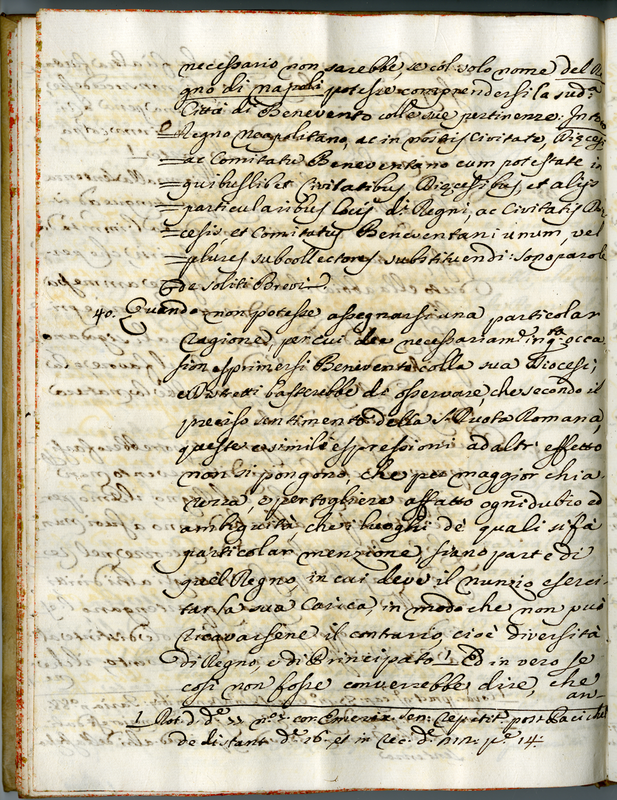 necessario non sarebbe, se col solo nome del Re
gno di Napoli potesse comprendersi la sud.a
Città di Benevento colle sue pertinenze: In toto
Regno Neapolitano, ac in nostris Civitate, Diœcesi
ac Comitatu Beneventano cum potestate in
quibuslibet Civitatibus, Diœcesibus et alijs
particularibus locis d.i Regni, ac Civitatis Diœ
cesis et Comitatus Beneventani unum, vel
plures subcollectores substituendi: sono parole
de soliti Brevi.
40. Quando non potesse assegnarsi una particolar
ragione, per cui necessariam.te in q.ta occa
sion esprimersi Benevento colla sua Diocesi,
e Distretti basterebbe di osservare, che secondo il
preciso sentimento della S. Ruota Romana,
queste e simili espressioni ad altr' effetto
non si pongono, che per maggior chia
rezza, e per togliere affatto ogni dubio ed
ambiguità, che i luoghi de quali si fà
particolar menzione, siano parte di
quel Regno, in cui deve il nunzio eserci
tar la sua Carica, in modo che non può
ricavarsene il contrario, cioè diversità
di Regno, e di Principato. 1 Ed in vero se
così non fosse converrebbe dire, che
an-
1 Rot. d. de cor. Emerix Sen. repetit. post
de distant. d.e 16. et in rec. d. 14.